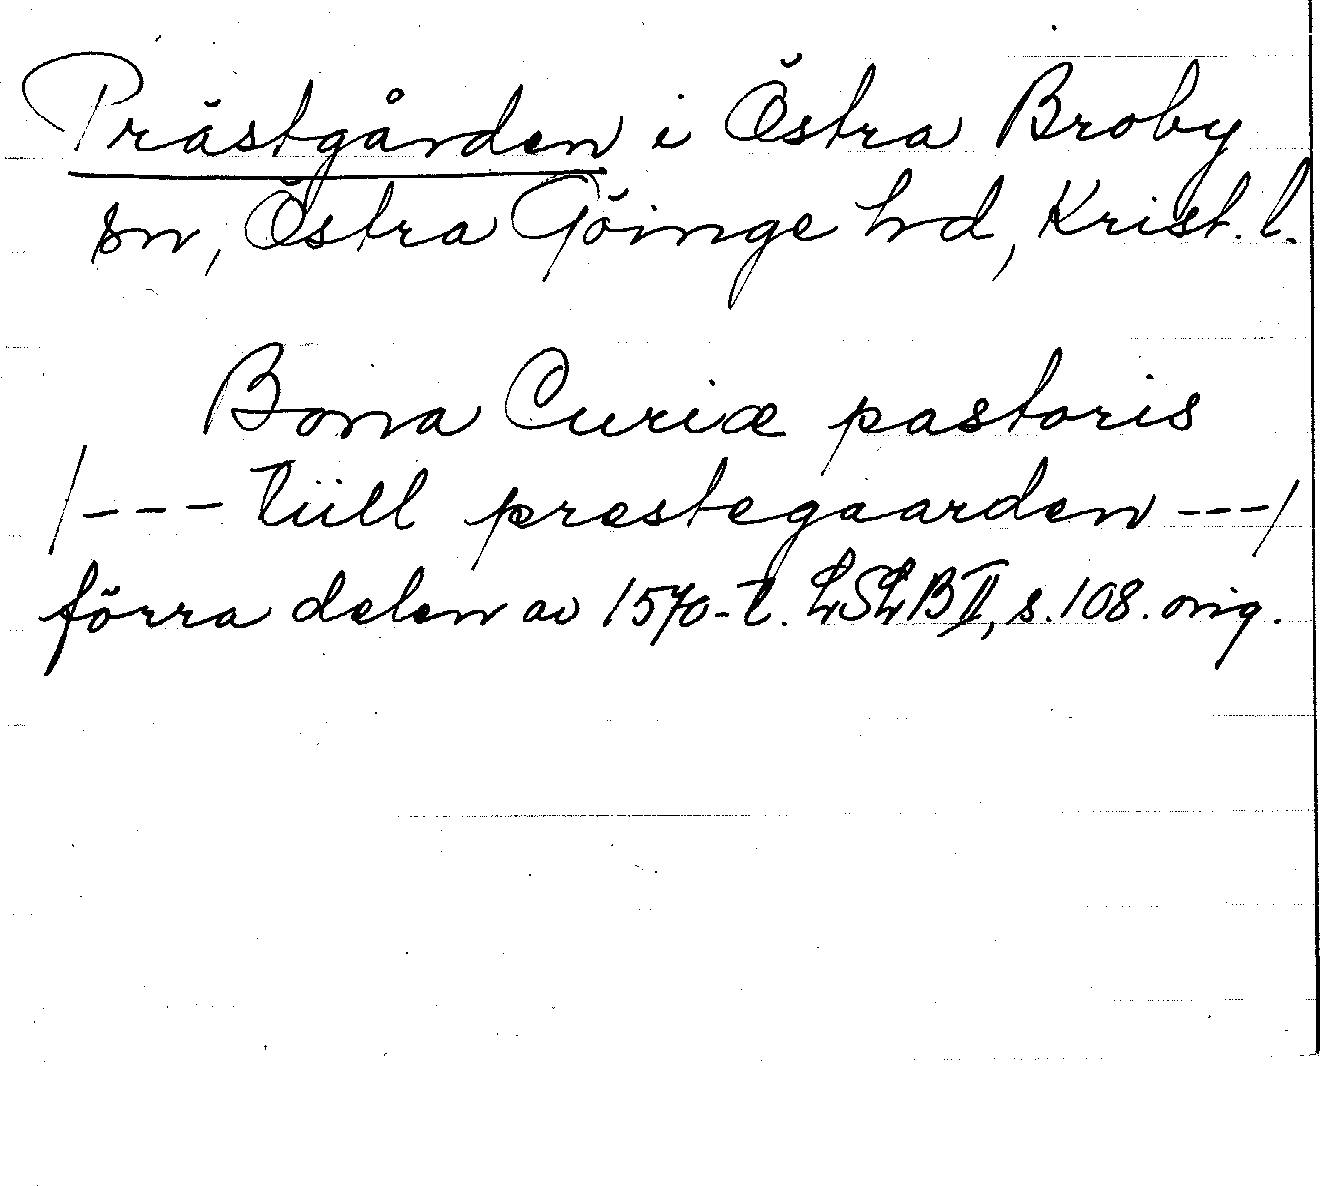 Prästgården i Östra Broby
sn, Östra Göinge hd, Krist. l.
Bona Curiæ pastoris
/--- tiill prestegaarden ---/
förra delen av 1570-t. LSLB II, s. 108. orig.